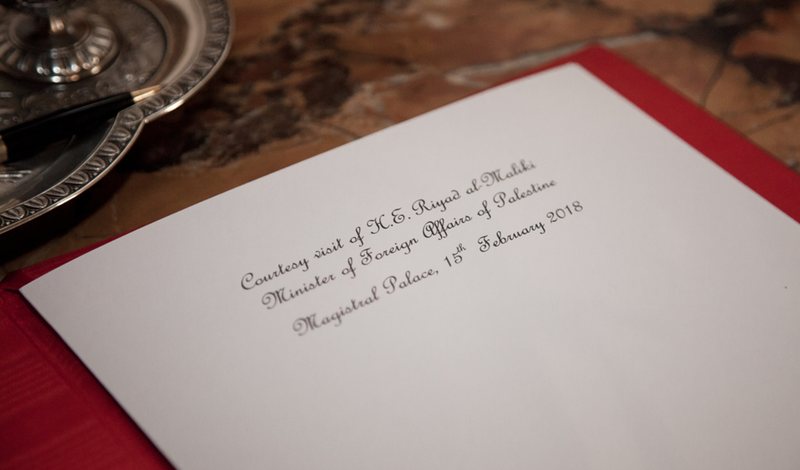 Courtesy visit of H.E. Riyad al-Maliki
Minister of Foreign Affairs of Palestine
Magistral Palace, 15th February 2018